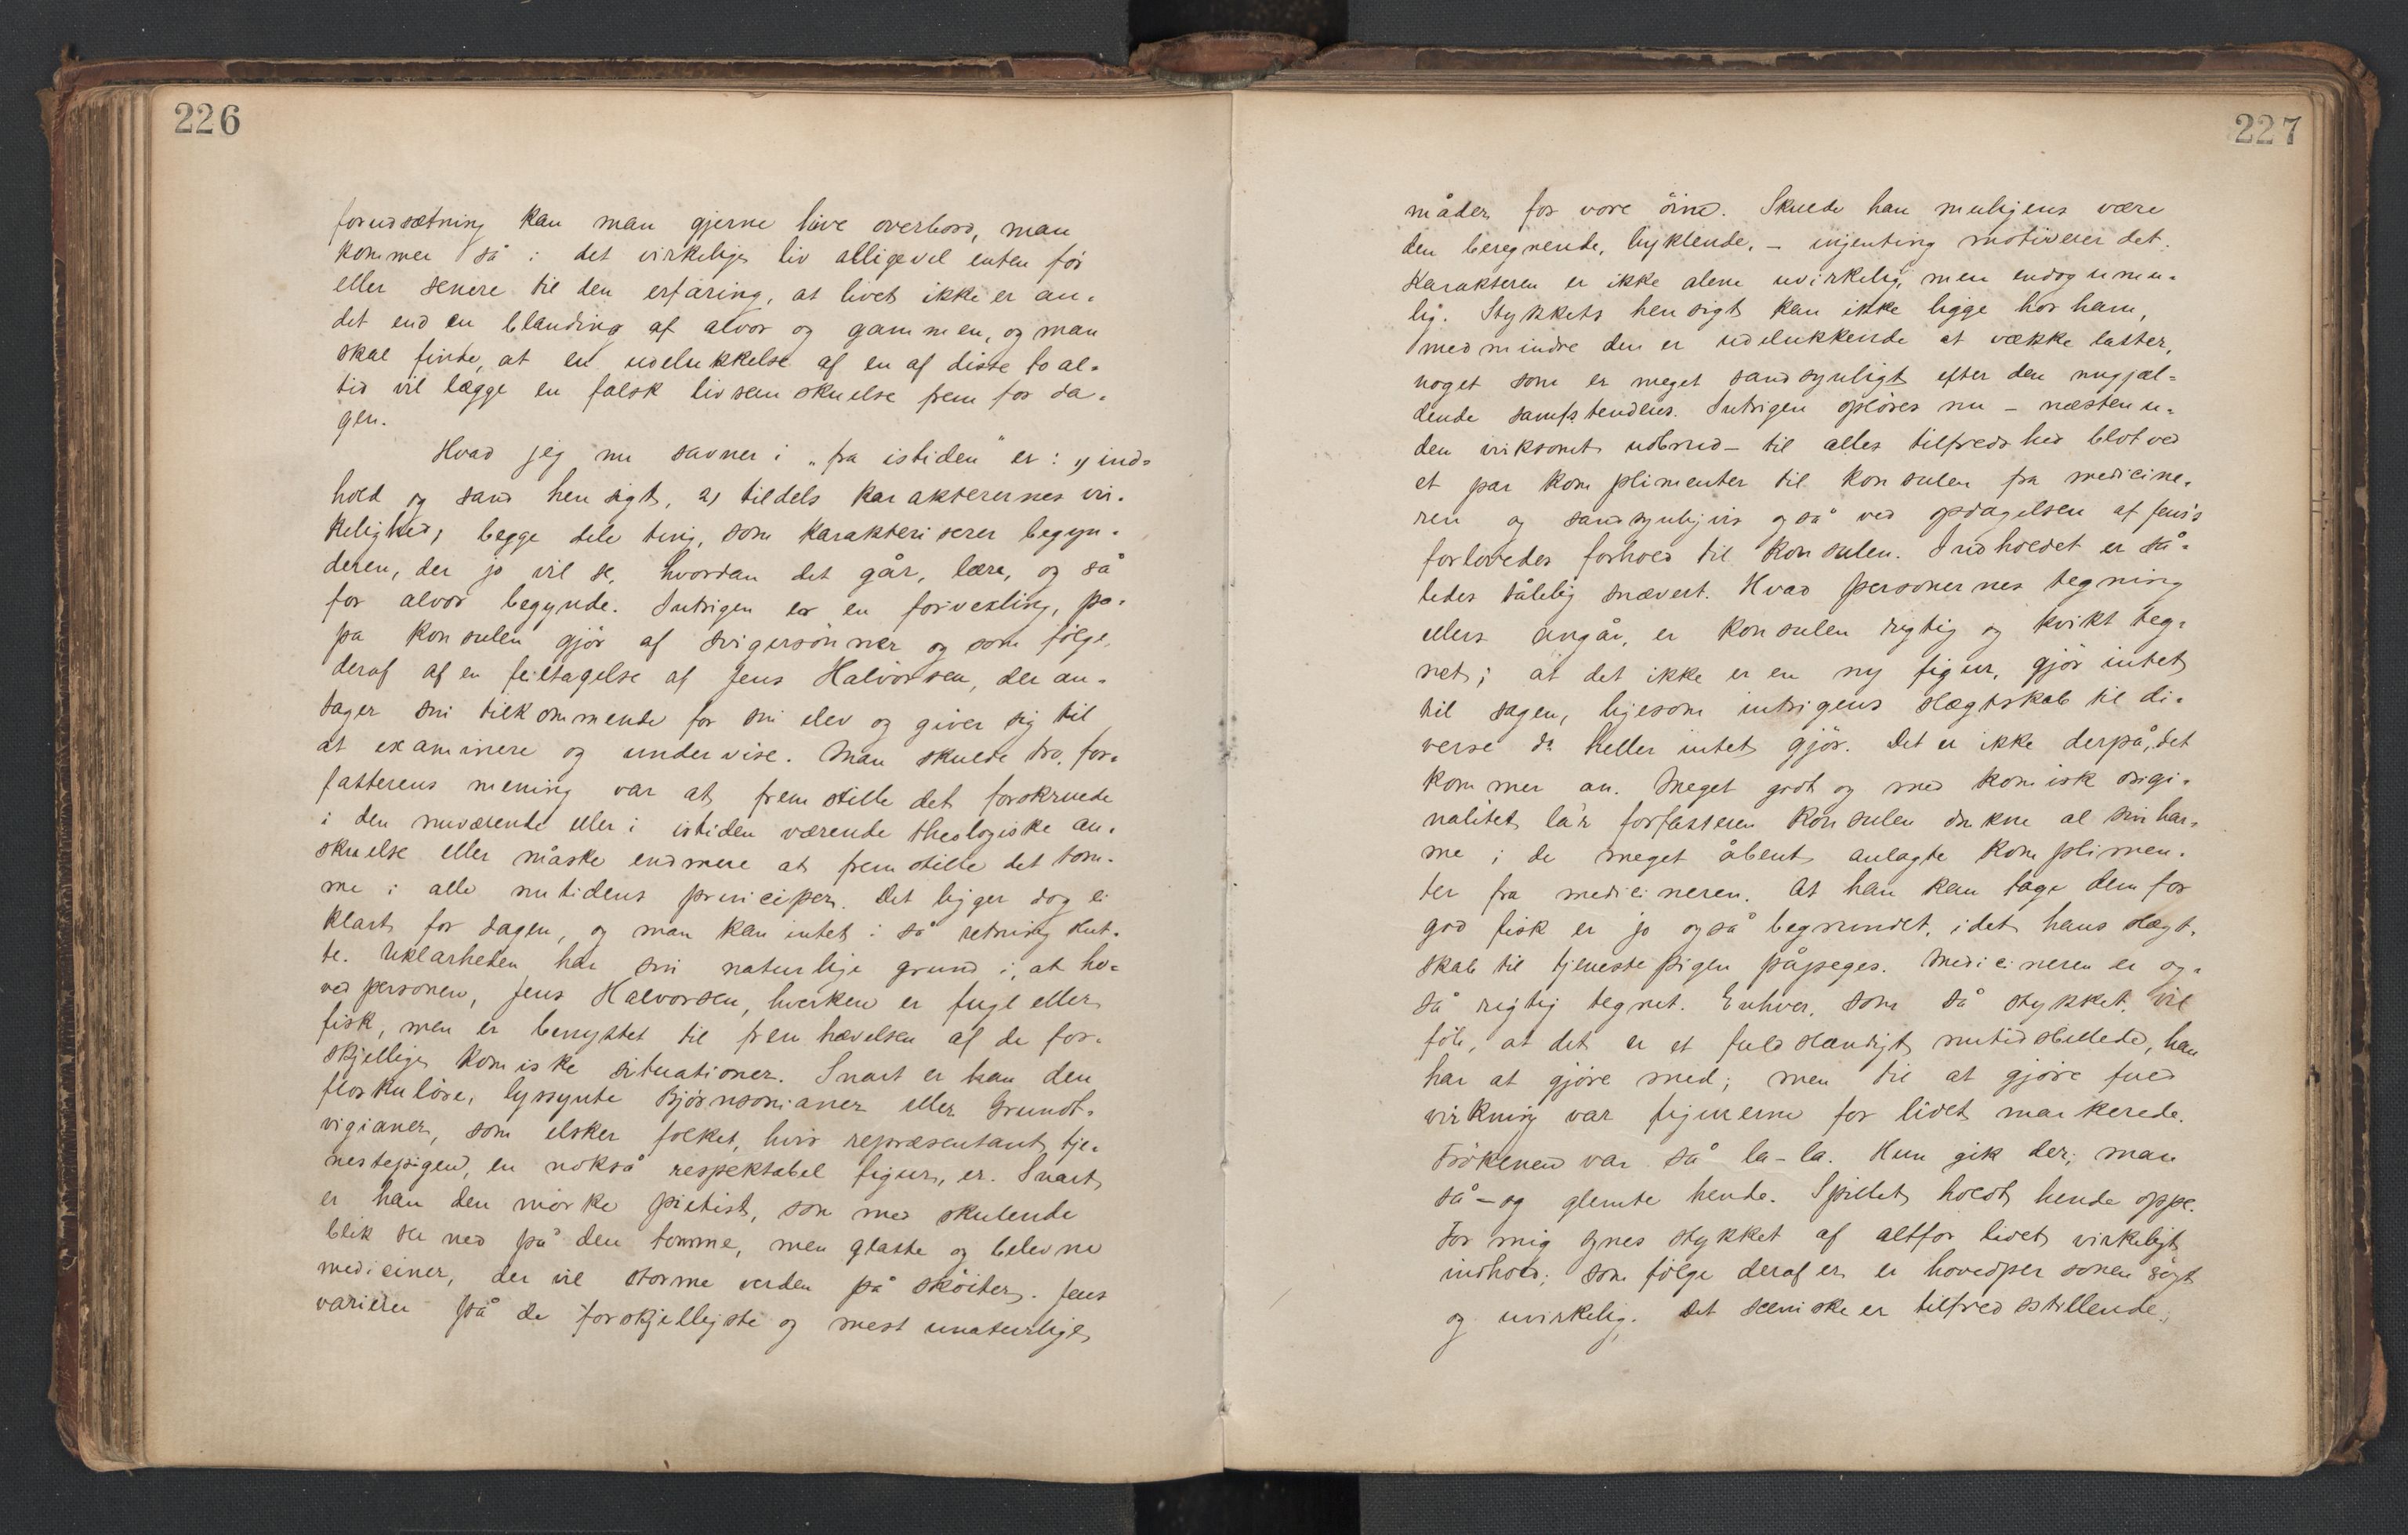 226
forudsætning kan man gjerne hive overbord, man
kommer så i det virkelige liv alligevel enten før
eller senere til den erfaring, at livet ikke er an-
det end en blanding af alvor og gammen, og man
skal finde, at en udelukkelse af en af disse to al-
tid vil lægge en falsk livsanskuelse frem for da-
gen.
Hvad jeg nu savner i „fra istiden" er: 1) ind-
hold og sand hensigt, 2) tildels karakterernes vir-
kelighed; begge dele ting, som karakteriserer begyn-
deren, der jo vil se, hvordan det går, lære, og så
for alvor begynde. Intrigen er en forvexling, pa-
pa konsulen gjør af svigersønner og som følge
deraf af en feiltagelse af Jens Halvorsen, der an-
tager sin tilkommende for sin elev og giver sig til
at examinere og undervise. Man skulde tro, for-
fatterens mening var at fremstille det forskruede
i den nuværende eller i istiden værende theologiske an-
skuelse eller måske endmere at fremstille det tom-
me i alle nutidens principer. Det ligger dog ei
klart for dagen, og man kan intet i så retning slut-
te. Uklarheden har sin naturlige grund i, at ho-
vedpersonen, Jens Halvorsen, hverken er fugl eller
fisk, men er benyttet til fremhævelsen af de for-
skjellige komiske situationer. Snart er han den
floskuløse, lyssynte Bjørnsonianer eller Grundt-
vigianer, som elsker folket, hvis repræsentant tje-
nestepigen, en nokså respektabel figur, er. Snart
er han den mørke pietist, som med skulende
blik ser ned på den tomme, men glatte og belevne
mediciner, der vil storme verden på skøiter. Jens
varierer på de forskjelligste og mest unaturlige
227
måder for vore øine. Skulde han muligens være
den beregnende, hyklende, – ingenting motiverer det.
Karakteren er ikke alene uvirkelig, men endog umu-
lig. Stykkets hensigt kan ikke ligge hos ham,
medmindre den er udelukkende at vække latter,
noget som er meget sandsynligt efter den nugjæl-
dende samfs. tendens. Intrigen opløses nu – næsten u-
den virksomt udbrud – til alles tilfredshed blot ved
et par komplimenter til konsulen fra medicine-
ren og sandsynligvis også ved opdagelsen af Jens's
forlovedes forhold til konsulen. Indholdet er så-
ledes tålelig snævert. Hvad personernes tegning
ellers angår, er konsulen rigtig og kvikt teg-
net; at det ikke er en ny figur, gjør intet
til sagen, ligesom intrigens slægtskab til di-
verse do heller intet gjør. Det er ikke derpå, det
kommer an. Meget godt og med komisk origi-
nalitet lar forfatteren konsulen drukne al sin har-
me i de meget åbent anlagte komplimen-
ter fra medicineren. At han kan tage dem for
god fisk er jo også begrundet, idet hans slægt-
skab til tjenestepigen påpeges. Medicineren er og-
så rigtig tegnet. Enhver, som så stykket, vil
føle, at det er et fuldstændigt nutidsbillede, han
har at gjøre med; men til at gjøre fuld
virkning var figurerne for lidet markerede.
Frøkenen var så la-la. Hun gik der; man
så – og glemte hende. Spillet holdt hende oppe.
For mig synes stykket af altfor lidet virkeligt
indhold; som følge deraf er hovedpersonen søgt
og uvirkelig. Det sceniske er tilfredsstillende,